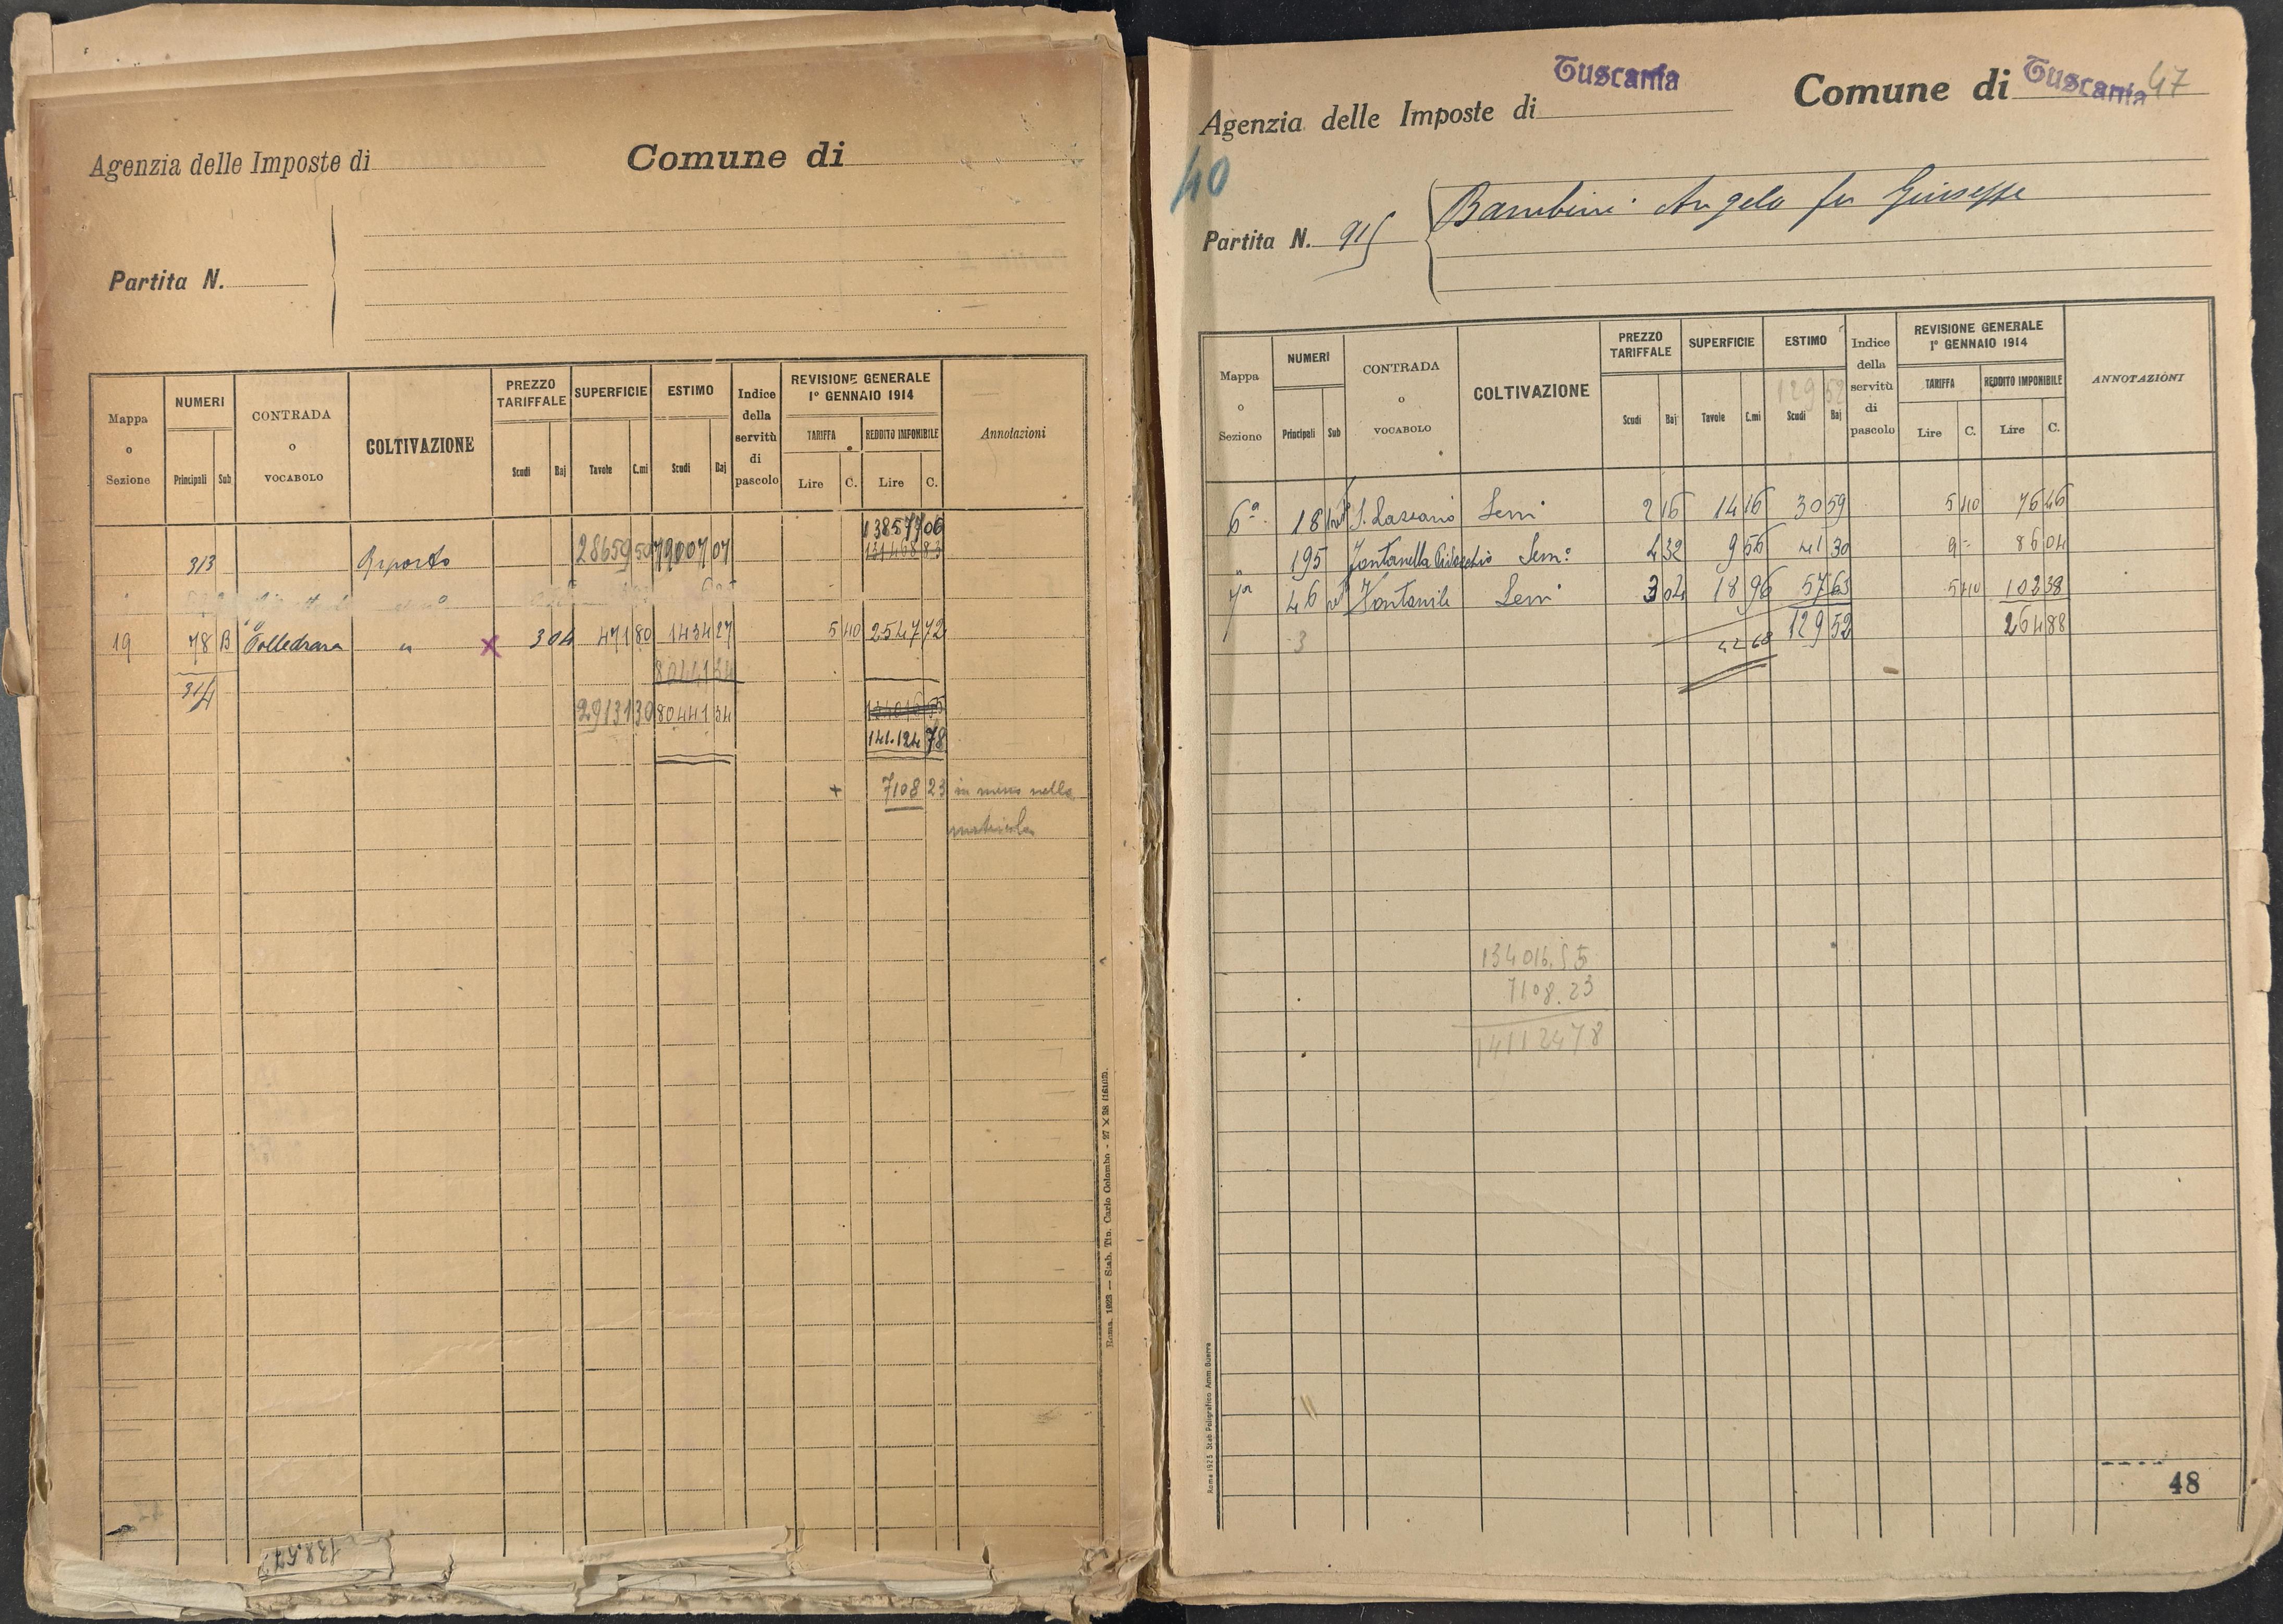 Agenzia delle Imposte di
Comune di
Partita N.
Mappa o Sezione
NUMERI
Principali Sub
CONTRADA o VOCABOLO
COLTIVAZIONE
PREZZO TARIFFALE
Scudi Baj
SUPERFICIE
Tavole C.mi
ESTIMO
Scudi Baj
Indice della servitù di pascolo
REVISIONE GENERALE 1° GENNAIO 1914
TARIFFA
Lire C.
REDDITO IMPONIBILE
Lire C.
Annotazioni
138577 06
313 Riporto 28659 50 79007 07 131468 83
19 78 B Polledrara " X 3 04 471 80 1434 27 5 40 2547 72
80441 34
314
29131 30 80441 34
141.124 78
+ 7108 23 in meno nella
matricola
Roma, 1923 — Stab. Tip. Carlo Colombo - 27 X 38 (1616D).
Tuscania
Agenzia delle Imposte di
Comune di Tuscania 47
40
Partita N. 915
Bambini Angelo fu Giuseppe
Mappa o Sezione
NUMERI
Principali Sub
CONTRADA o VOCABOLO
COLTIVAZIONE
PREZZO TARIFFALE
Scudi Baj
SUPERFICIE
Tavole C.mi
ESTIMO
129 52
Scudi Baj
Indice della servitù di pascolo
REVISIONE GENERALE 1° GENNAIO 1914
TARIFFA
Lire C.
REDDITO IMPONIBILE
Lire C.
ANNOTAZIONI
6ª 18 S. Lazzaro Semi 2 16 14 16 30 59 5 40 76 46
" 195 Fontanella Semo 4 32 9 56 41 30 9 - 86 04
7ª 46 Fontanile Semi 3 04 18 96 57 63 5 40 102 38
3 42 68 129 52 264 88
134016.55
7108.23
14112478
Roma 1923 Stab Poligrafico Amm. Guerra
48